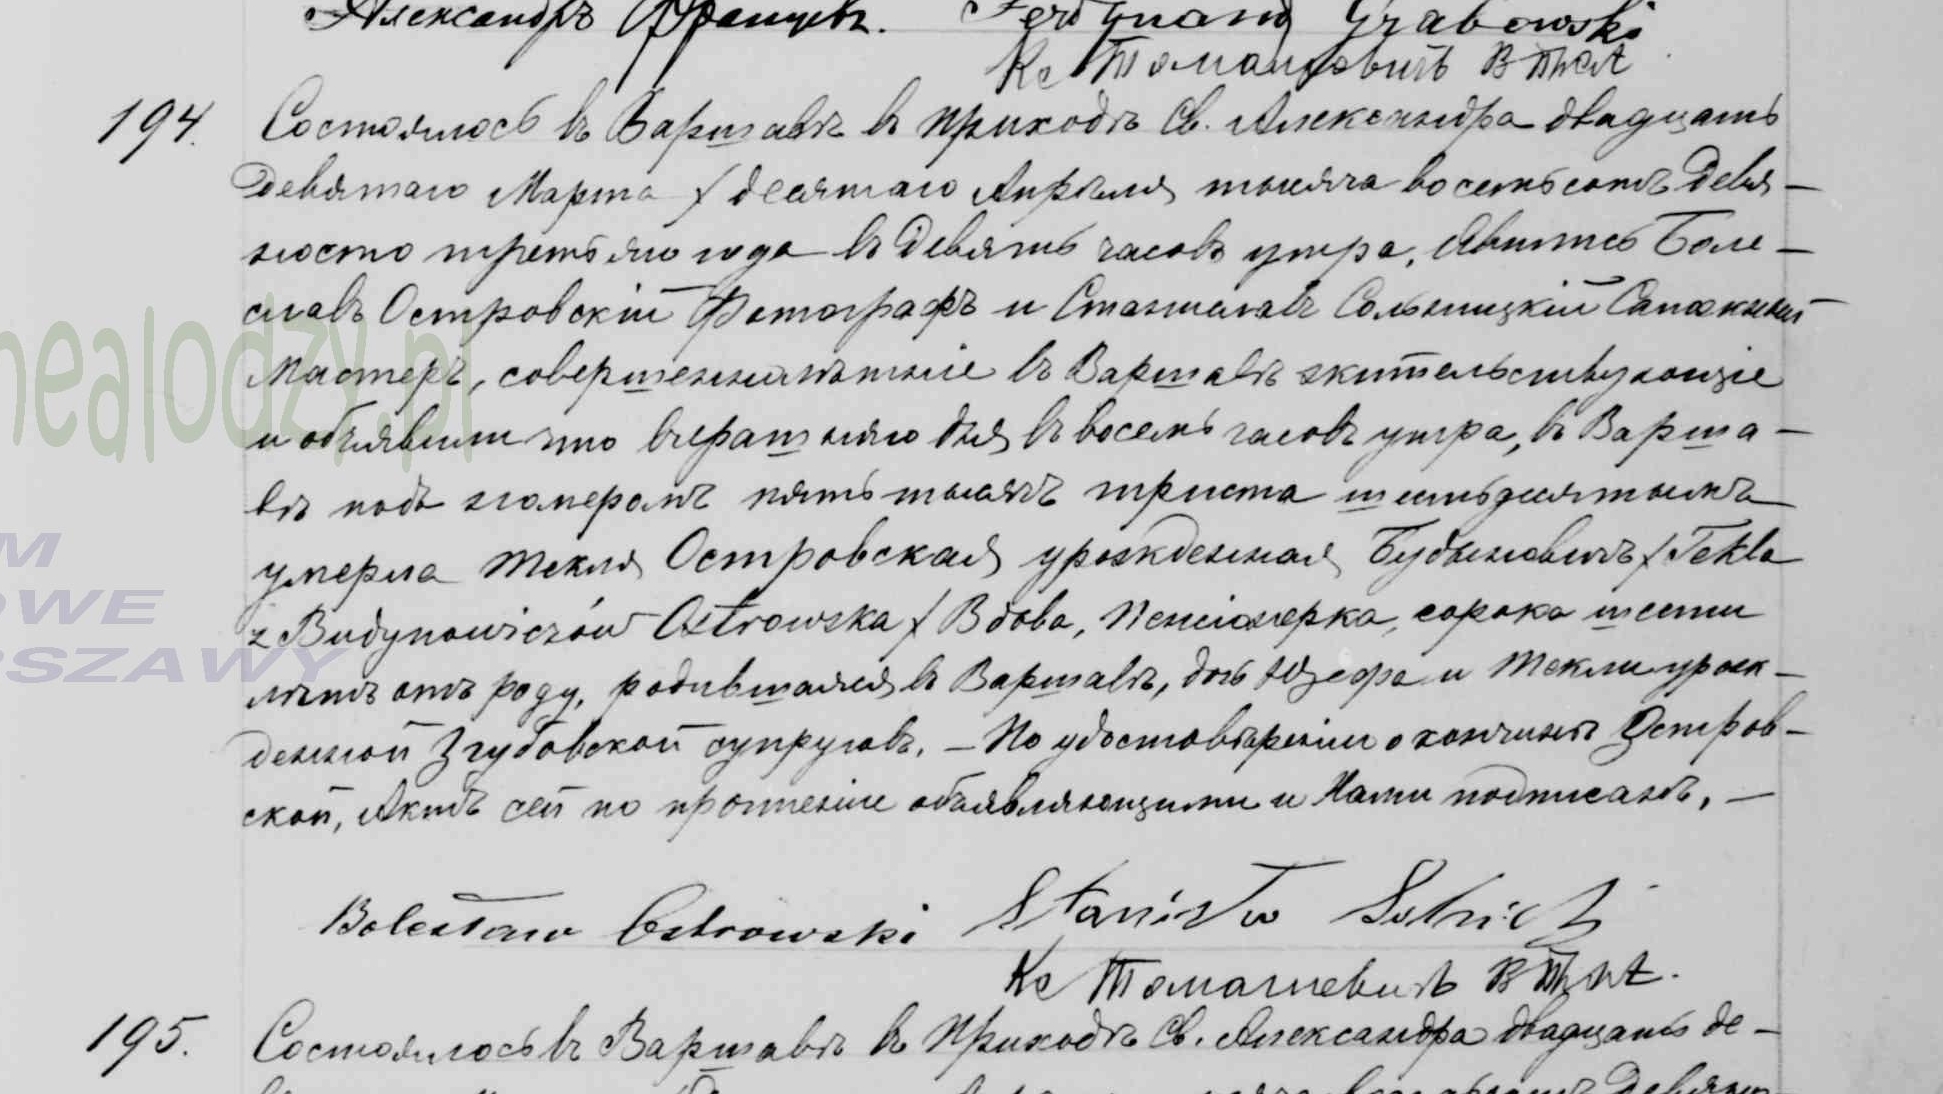 Александръ Францевъ. Ferdynand Grabowski
Кс Томашевичъ
194. Состоялось въ Варшавѣ въ приходѣ Св. Александра двадцать
девятаго Марта / десятаго Апрѣля тысяча восемьсотъ девя-
носто третьяго года въ девять часовъ утра. Явились Боле-
славъ Островскій Фотографъ и Станиславъ Сольницкій Сапожный
Мастеръ, совершеннолѣтніе въ Варшавѣ жительствующіе
и объявили что вчерашняго дня въ восемь часовъ утра, въ Варша-
вѣ подъ номеромъ пять тысячъ триста шестьдесятымъ
умерла Текля Островская урожденная Будыновичъ / Tekla
z Budynowiczów Ostrowska / Вдова, Пенсіонерка, сорока шести
лѣтъ отъ роду, родившаяся въ Варшавѣ, дочь Юзефа и Текли урож-
денной Згубовской супруговъ. — По удостовѣреніи о кончинѣ Остров-
ской, Актъ сей по прочтеніи объявляющими и Нами подписанъ. —
Bolesław Ostrowski Stanisław
Кс Томашевичъ
195. Состоялось въ Варшавѣ въ Приходѣ Св. Александра двадцать де-
nealodzy.pl
M
OWE
RSZAWY